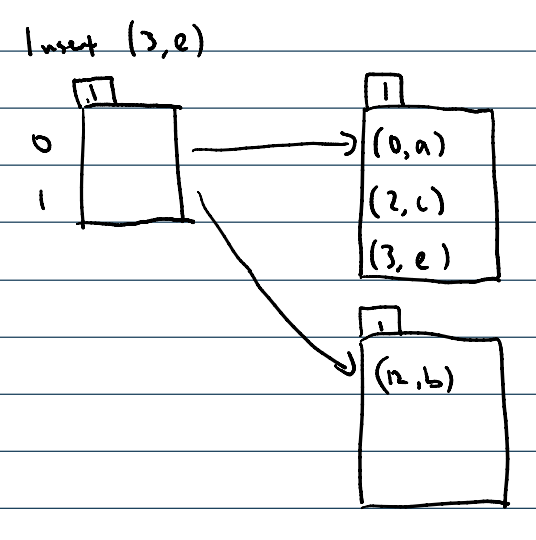 Insert (3,e)
1
0
1
1
(0,a)
(2,c)
(3,e)
1
(12,b)